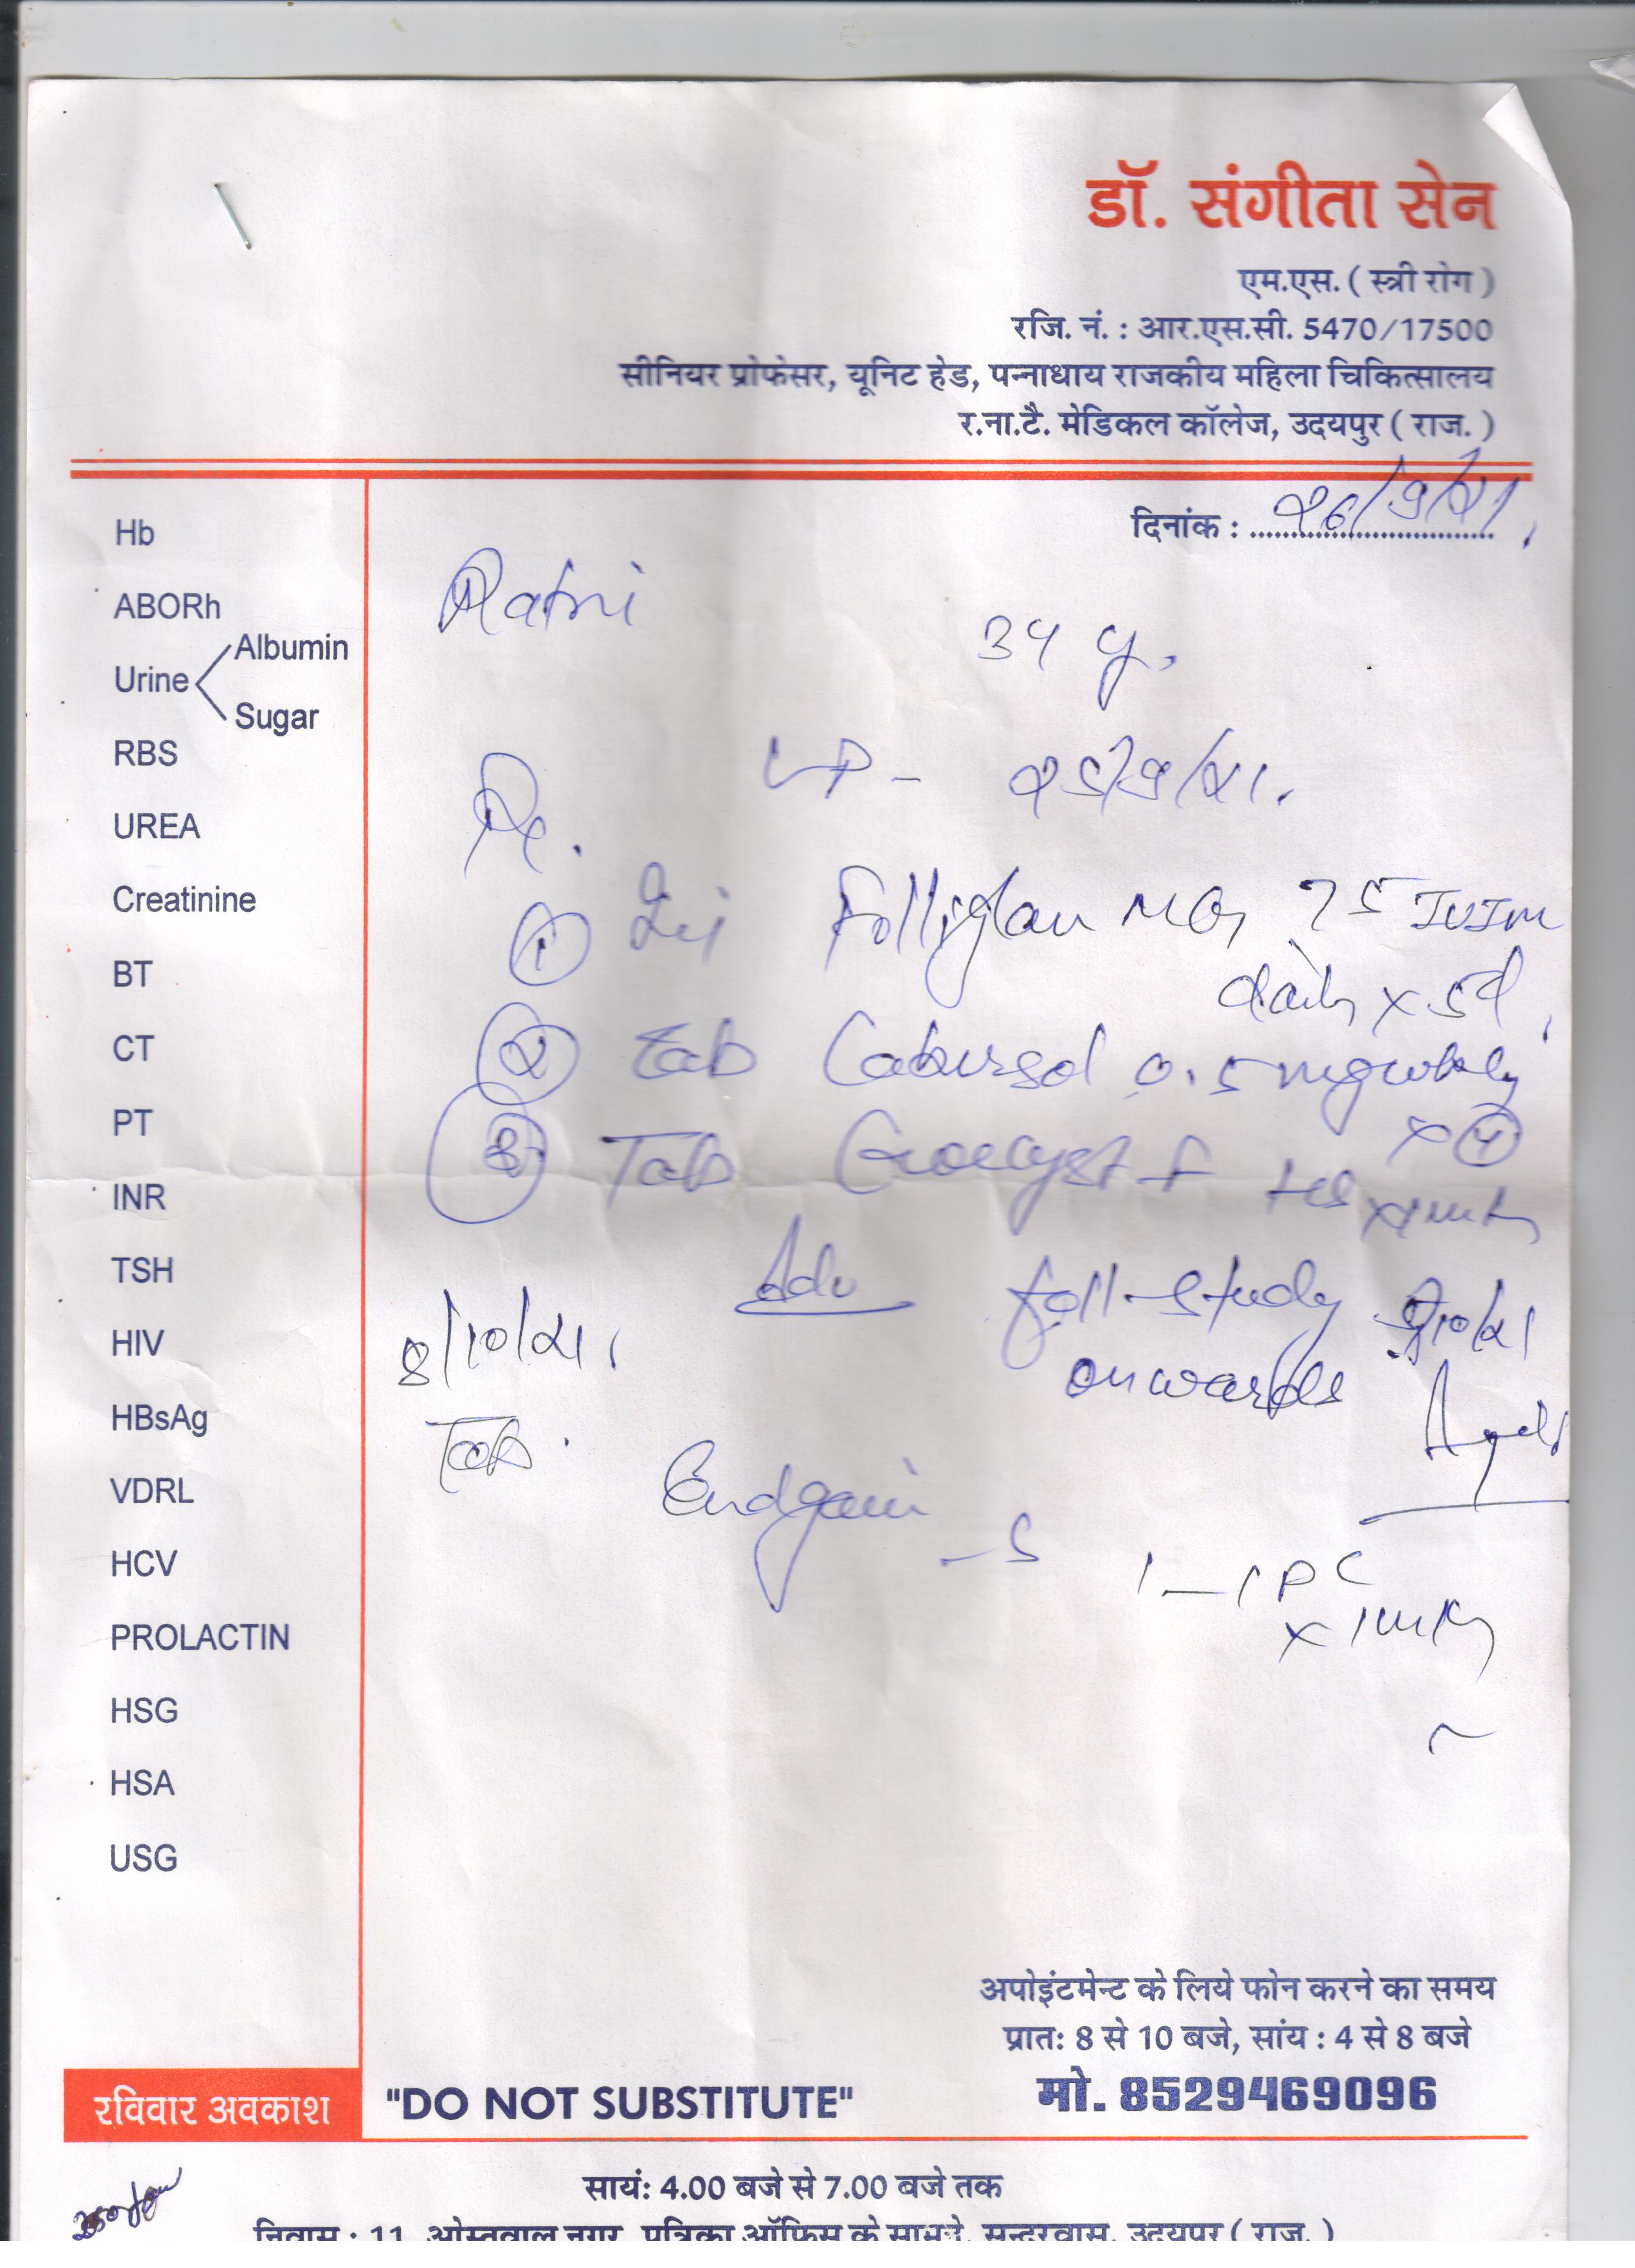 डॉ. संगीता सेन
एम.एस. ( स्त्री रोग )
रजि. नं. : आर.एस.सी. 5470/17500
सीनियर प्रोफेसर, यूनिट हेड, पन्नाधाय राजकीय महिला चिकित्सालय
र.ना.टै. मेडिकल कॉलेज, उदयपुर ( राज. )
दिनांक : 26/9/21.
Hb
ABORh
Urine
Albumin
Sugar
RBS
UREA
Creatinine
BT
CT
PT
INR
TSH
HIV
HBsAg
VDRL
HCV
PROLACTIN
HSG
HSA
USG
34 y.
25/9/21.
① Inj 75 IU Im
daily x 5d
② Tab 0.5 mg
x ④
Tab
Adv foll-study
onwards
8/10/21
Tab. Endgain
1–1 PC
अपोइंटमेन्ट के लिये फोन करने का समय
प्रात: 8 से 10 बजे, सांय : 4 से 8 बजे
मो. 8529469096
रविवार अवकाश
"DO NOT SUBSTITUTE"
सायं: 4.00 बजे से 7.00 बजे तक
निवास : 11, ओस्तवाल नगर, पत्रिका ऑफिस के सामने, सुन्दरवास, उदयपुर ( राज. )